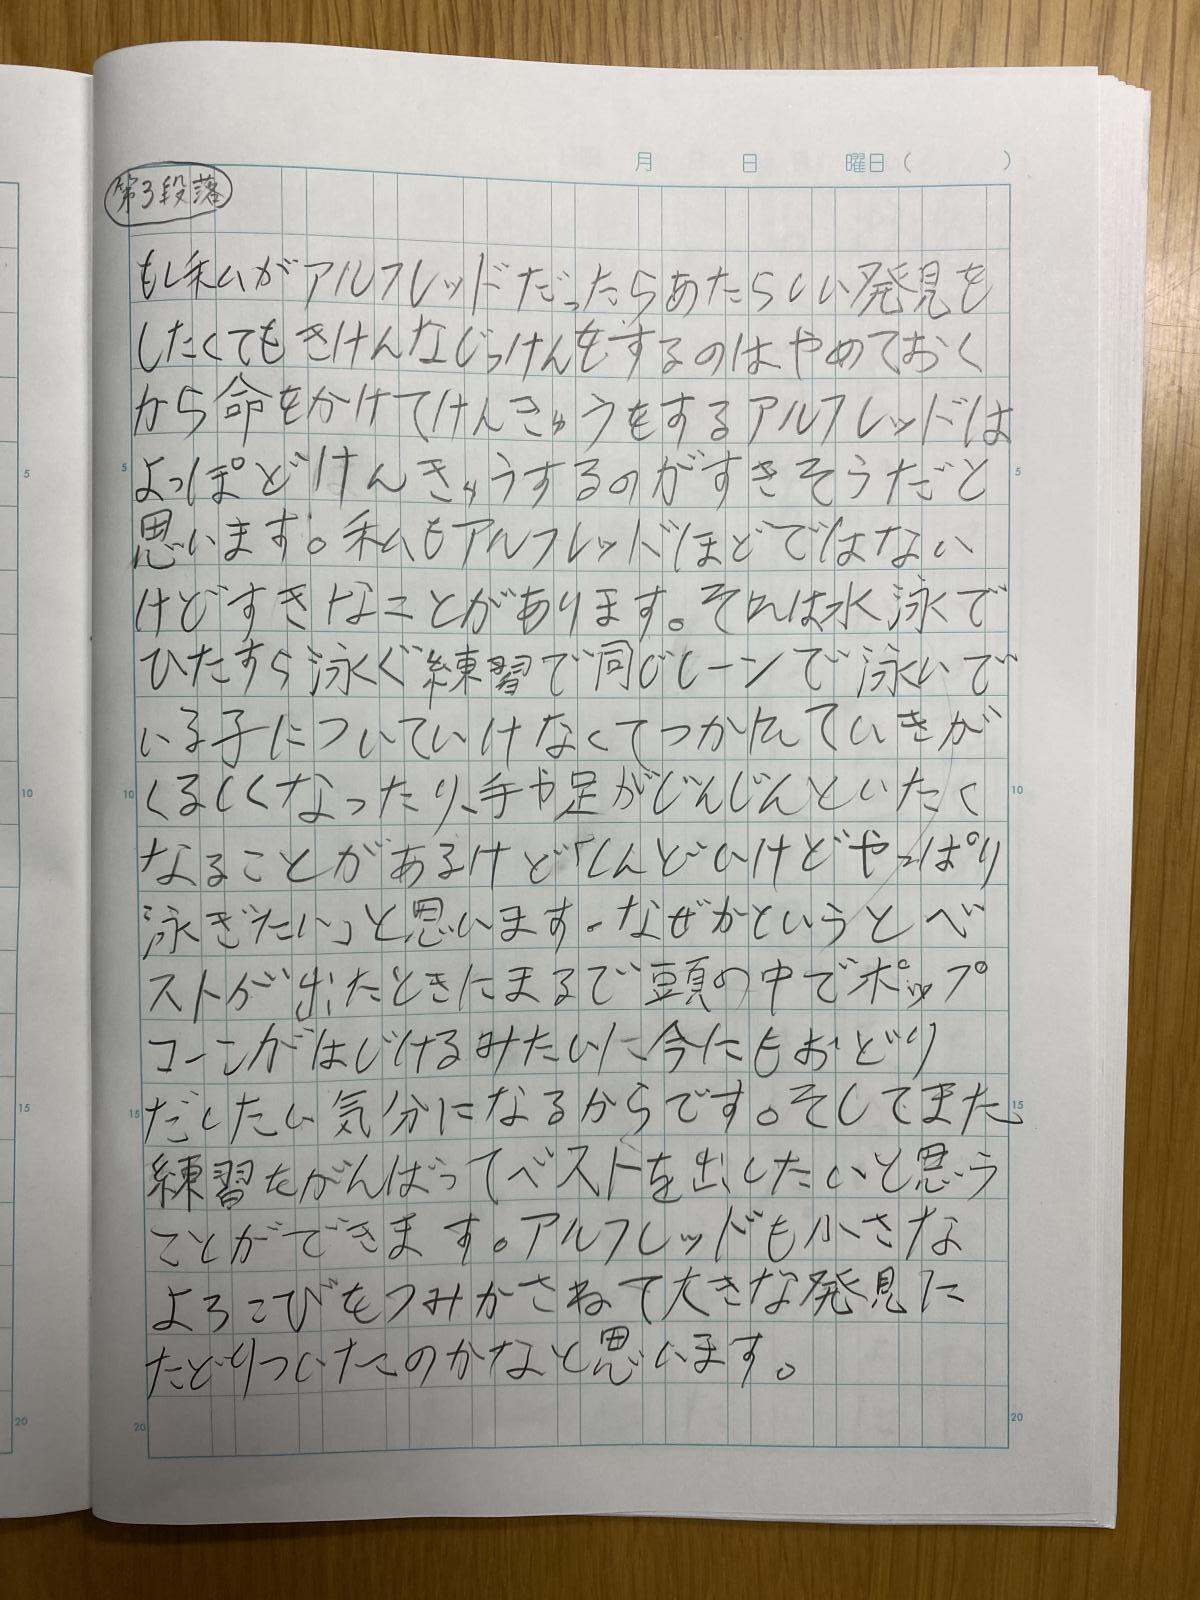 月 日 曜日( )
第3段落
もし私がアルフレッドだったらあたらしい発見を
したくてもきけんなじっけんをするのはやめておく
から命をかけてけんきゅうをするアルフレッドは
よっぽどけんきゅうするのがすきそうだと
思います。私もアルフレッドほどではない
けどすきなことがあります。それは水泳で
ひたすら泳ぐ練習で同じレーンで泳いで
いる子についていけなくてつかれていきが
くるしくなったり、手や足がじんじんといたく
なることがあるけど「しんどいけどやっぱり
泳ぎたい」と思います。なぜかというとベ
ストが出たときにまるで頭の中でポップ
コーンがはじけるみたいに今にもおどり
だしたい気分になるからです。そしてまた
練習をがんばってベストを出したいと思う
ことができます。アルフレッドも小さな
よろこびをつみかさねて大きな発見に
たどりついたのかなと思います。
5
10
15
20
5
10
15
20
5
10
15
20